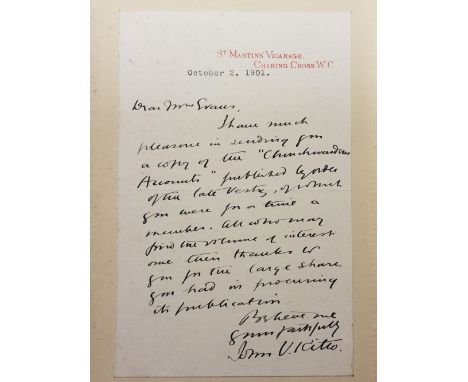 St. Martins' Vicarage.
Charing Cross. W.C.
October 2, 1901.
Dear Mrs Evans,
I have much
pleasure in sending you
a copy of the "Churchwardens
Accounts" published by order
of the late Vestry, of which
you were for a time a
member. All who may
find the volume of interest
owe their thanks to
you for the large share
you had in procuring
its publication.
Believe me
yours faithfully
John V. Kitto.